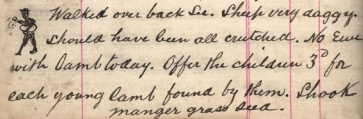 Walked over back Sec. Sheep very daggy.
Should have been all crutched. No Ewe
with lamb today. Offer the children 3d for
each young lamb found by them. Shook
manger grass seed.